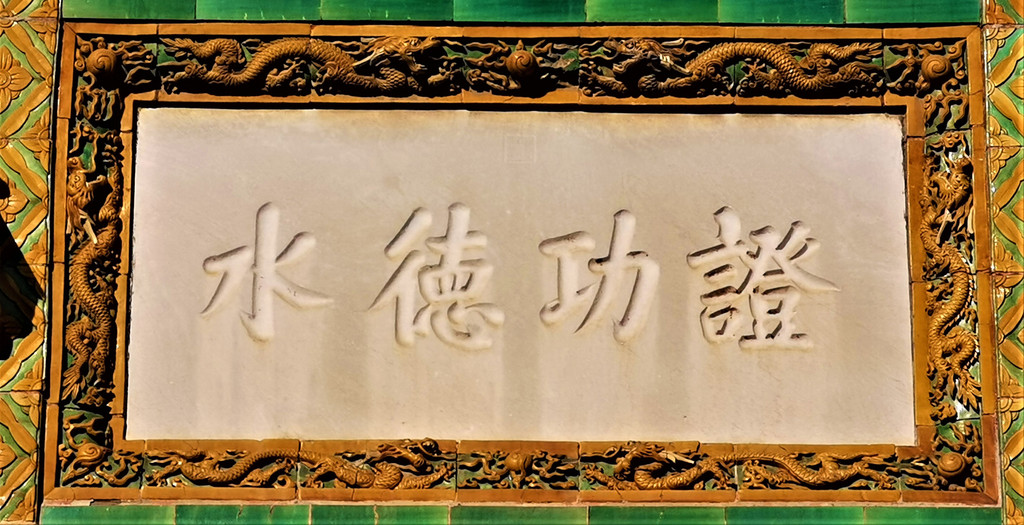 證功德水